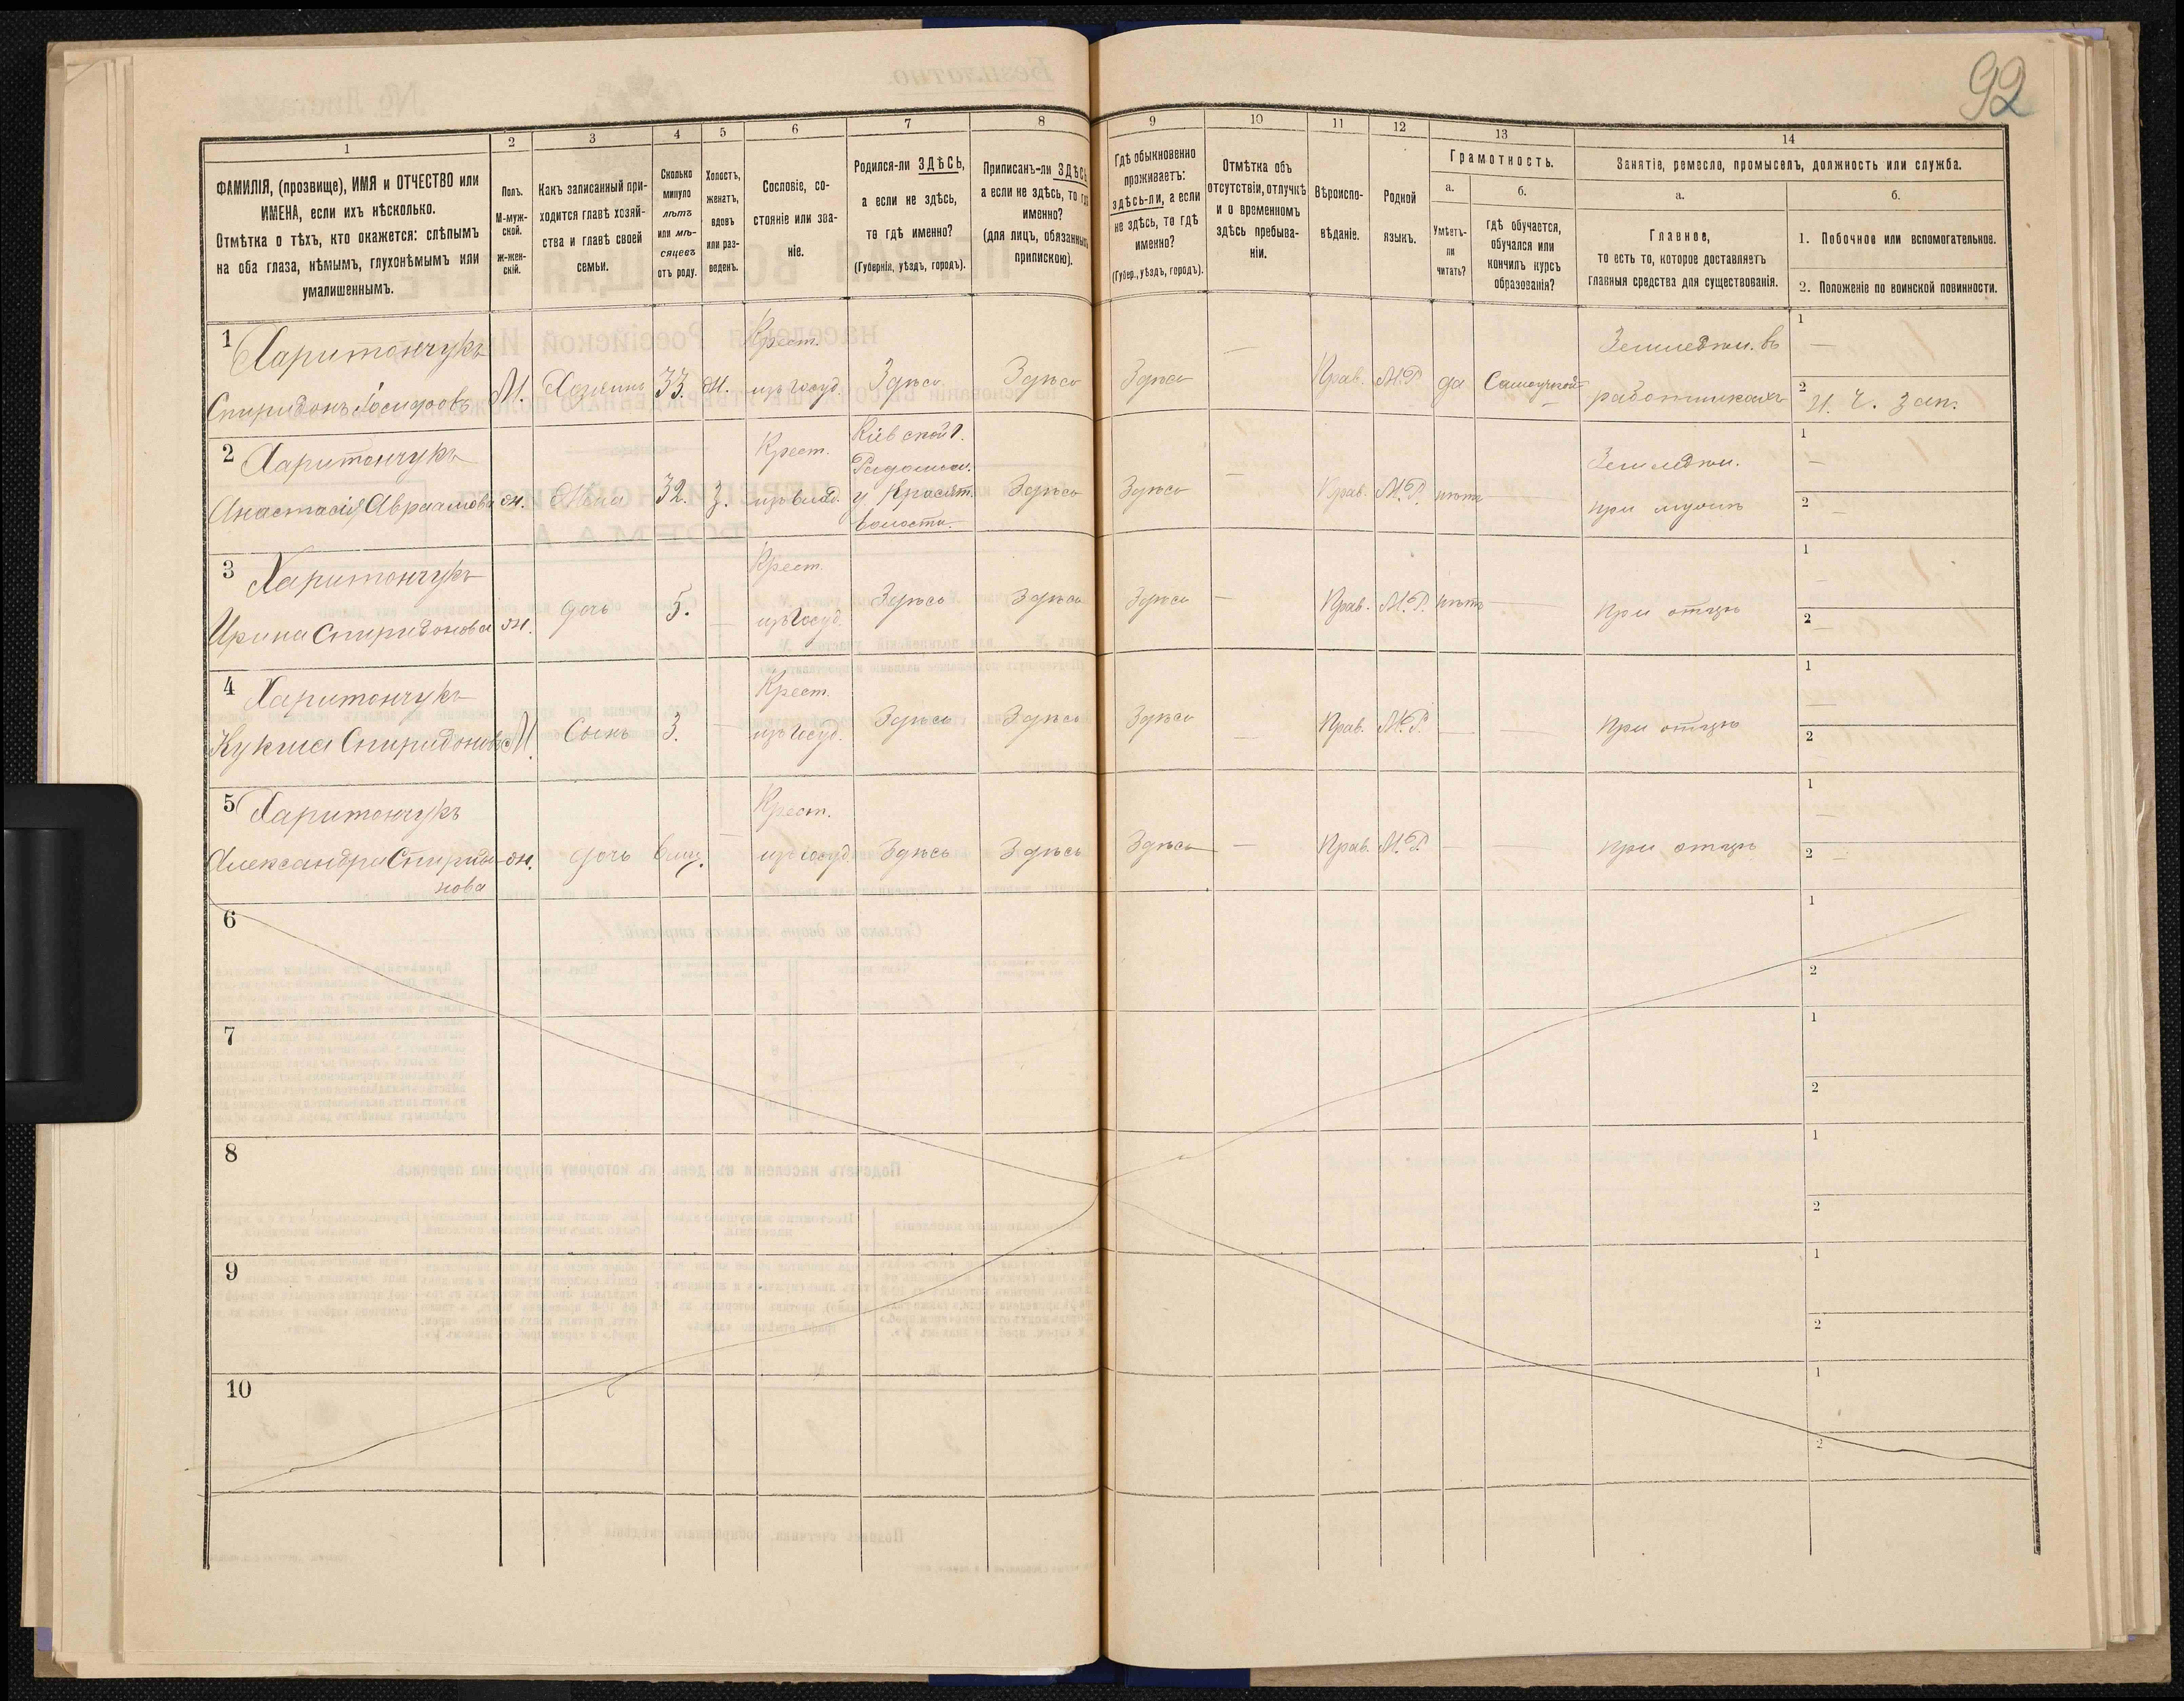 92
1
2
3
4
5
6
7
8
9
10
11
12
13
14
ФАМИЛІЯ, (прозвище), ИМЯ и ОТЧЕСТВО или
ИМЕНА, если ихъ нѣсколько.
Отмѣтка о тѣхъ, кто окажется: слѣпымъ
на оба глаза, нѣмымъ, глухонѣмымъ или
умалишеннымъ.
Полъ.
М-муж-
ской.
ж-жен-
скій.
Какъ записанный при-
ходится главѣ хозяй-
ства и главѣ своей
семьи.
Сколько
минуло
лѣтъ
или мѣ-
сяцевъ
отъ роду.
Холостъ,
женатъ,
вдовъ
или раз-
веденъ.
Сословіе, со-
стояніе или зва-
ніе.
Родился-ли ЗДѢСЬ,
а если не здѣсь,
то гдѣ именно?
(Губернія, уѣздъ, городъ).
Приписанъ-ли ЗДѢСЬ
а если не здѣсь, то гдѣ
именно?
(для лицъ, обязанныхъ
припискою).
Гдѣ обыкновенно
проживаетъ:
здѣсь-ли, а если
не здѣсь, то гдѣ
именно?
(Губер., уѣздъ, городъ).
Отмѣтка объ
отсутствіи, отлучкѣ
и о временномъ
здѣсь пребыва-
ніи.
Вѣроиспо-
вѣданіе.
Родной
языкъ.
Грамотность.
а.
Умѣетъ-
ли
читать?
б.
гдѣ обучается,
обучался или
кончилъ курсъ
образованія?
Занятіе, ремесло, промыселъ, должность или служба.
а.
Главное,
то есть то, которое доставляетъ
главныя средства для существованія.
б.
1. Побочное или вспомогательное.
2. Положеніе по воинской повинности.
1
Харитончукъ
Спиридонъ Іосифовъ
М.
Хозяинъ
33.
Ж.
Крест.
изъ госуд.
Здѣсь
Здѣсь
Здѣсь
—
Прав.
М.Р.
да
Самоучкой
Земледѣл. въ
работникахъ
1
—
2
И. Ч. Зап.
2
Харитончукъ
Анастасія Авраамова
ж.
Жена
32.
З.
Крест.
изъ влад.
Кіевской г.
Радомысл.
у Красят.
волости.
Здѣсь
Здѣсь
—
Прав.
М.Р.
нѣтъ
Земледѣл.
при мужѣ
1
—
2
—
3
Харитончукъ
Ирина Спиридонова
ж.
дочь
5.
—
Крест.
изъ госуд.
Здѣсь
Здѣсь
Здѣсь
—
Прав.
М.Р.
нѣтъ
При отцѣ
1
—
2
—
4
Харитончукъ
Кукша Спиридоновъ
М.
Сынъ
3.
—
Крест.
изъ госуд.
Здѣсь
Здѣсь
Здѣсь
—
Прав.
М.Р.
—
—
При отцѣ
1
—
2
—
5
Харитончукъ
Александра Спиридо-
нова
ж.
дочь
6 мц.
—
Крест.
изъ госуд.
Здѣсь
Здѣсь
Здѣсь
—
Прав.
М.Р.
—
—
при отцѣ
1
—
2
—
6
1
2
7
1
2
8
1
2
9
1
2
10
1
2